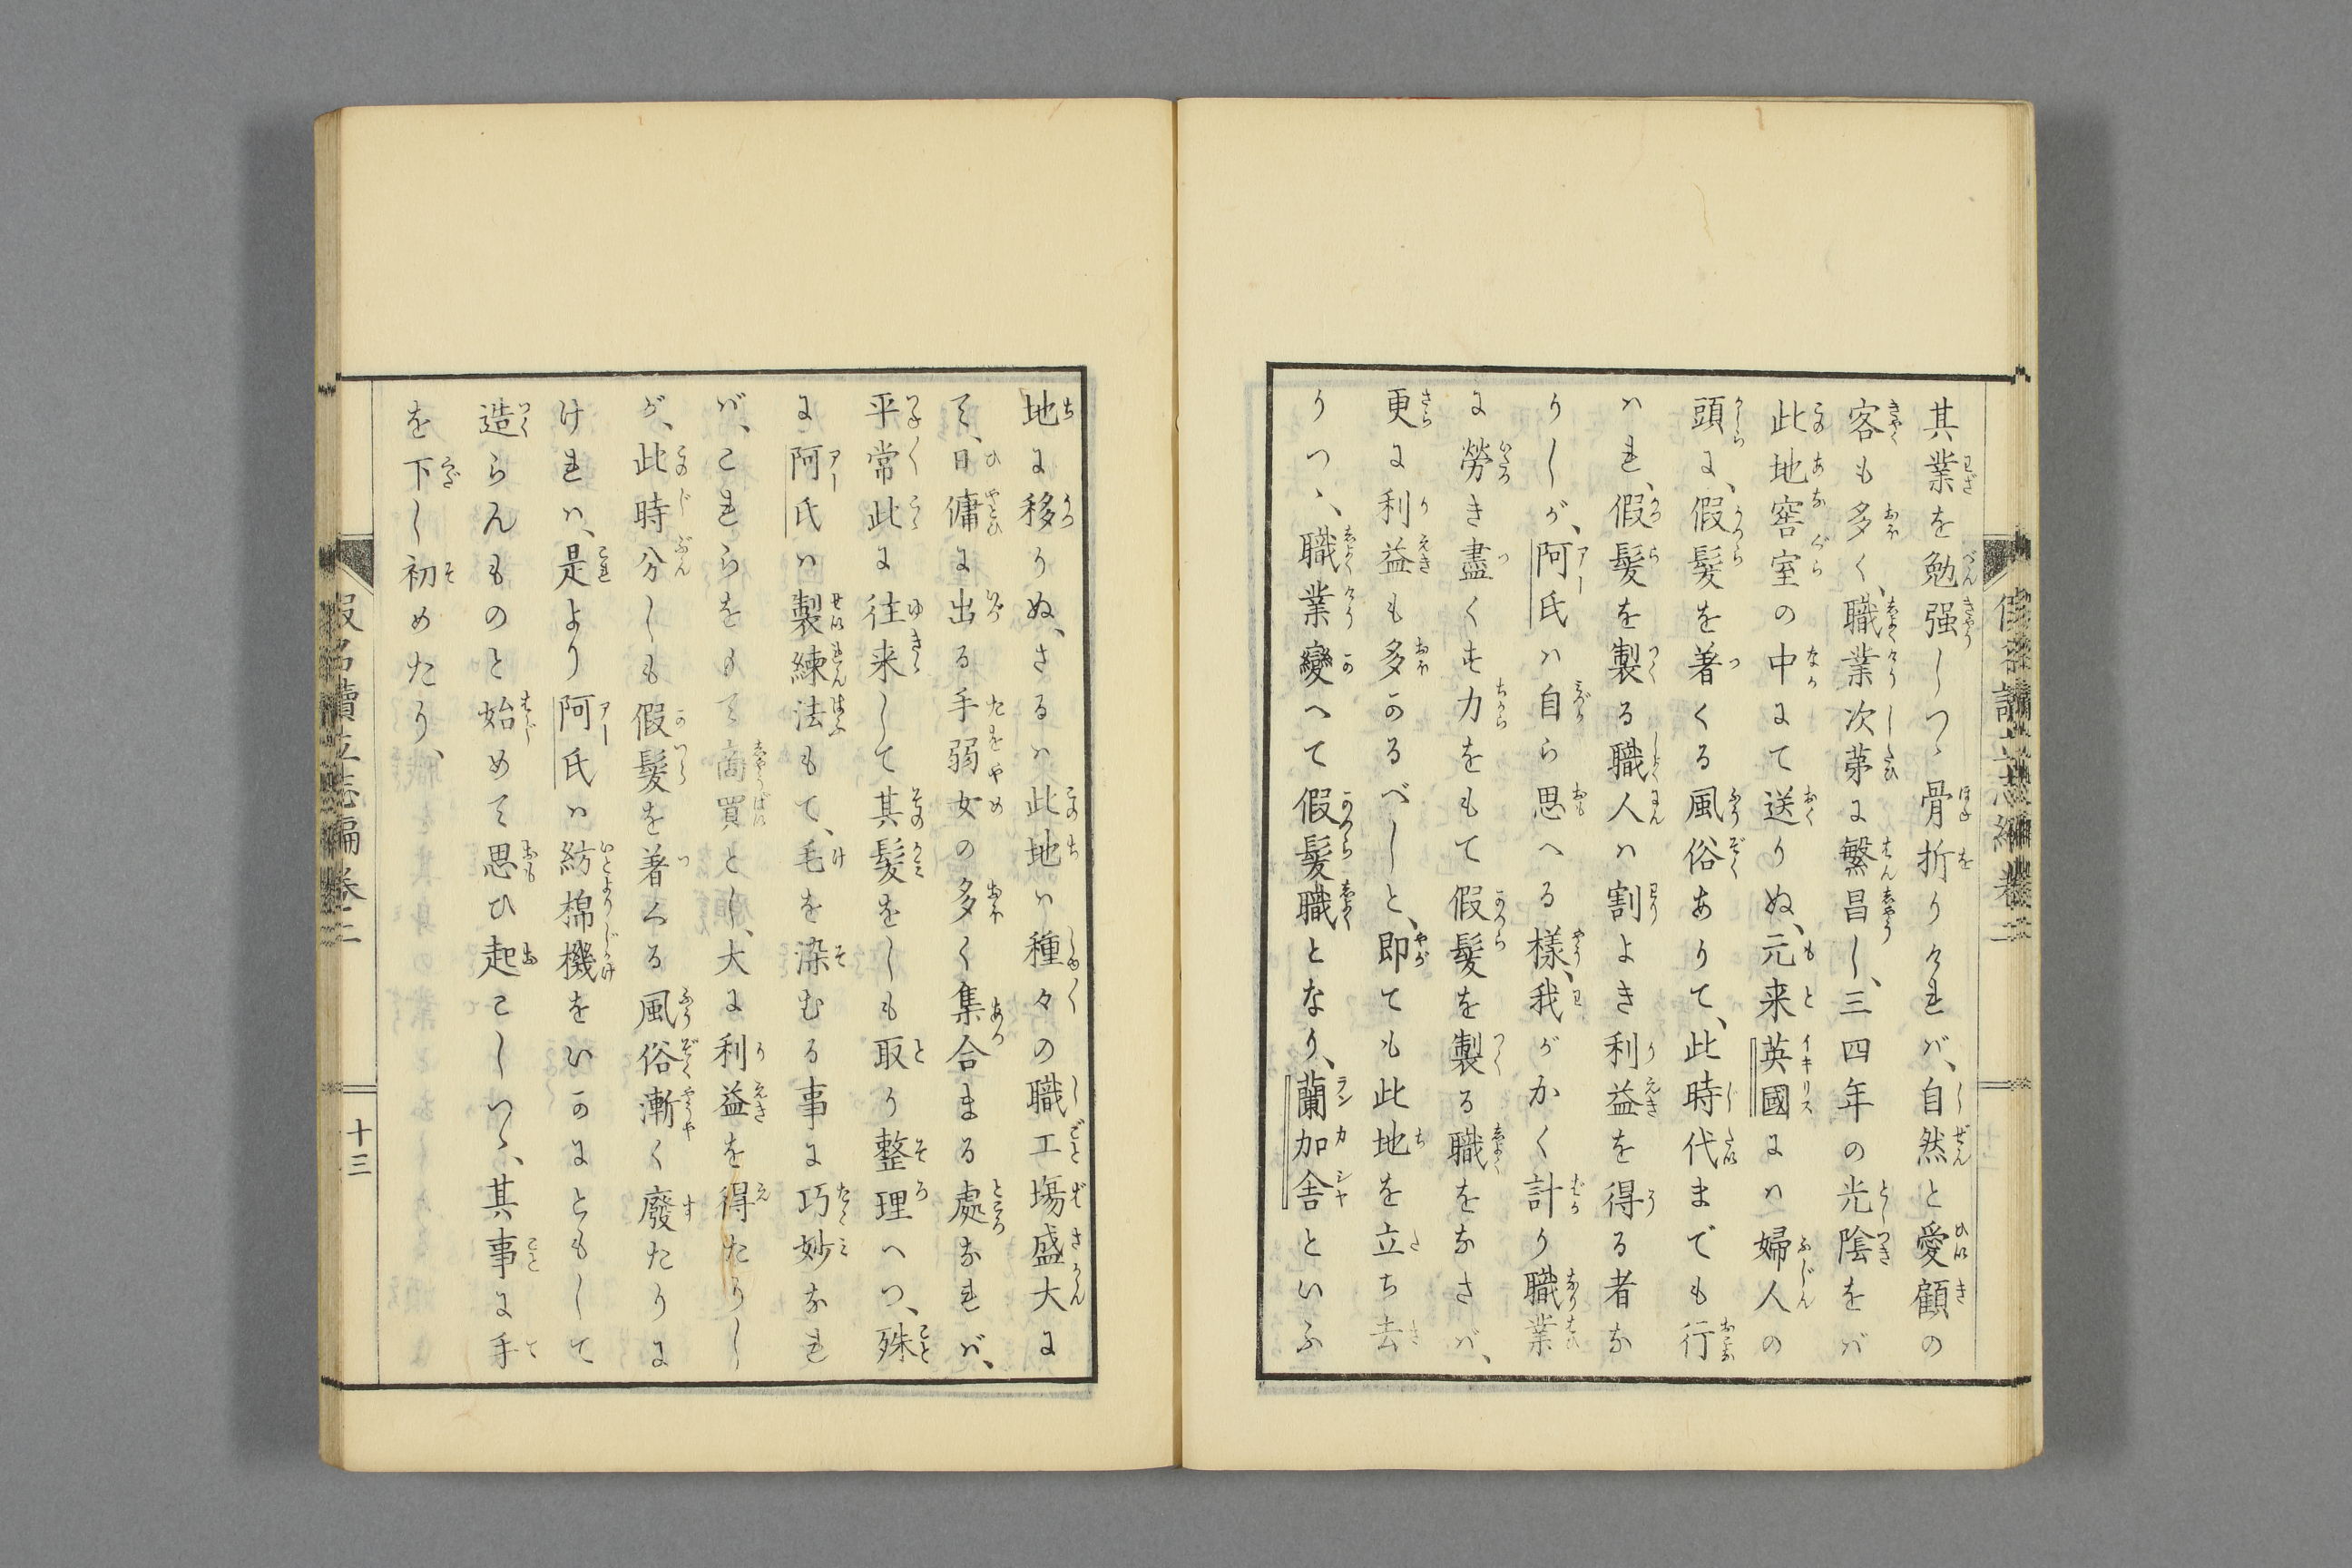 其業を勉强しつゝ骨折りけれバ、自然と愛顧の
客も多く、職業次第に繁昌し、三四年の光陰をバ
此地窖室の中にて送りぬ、元来英國にハ婦人の
頭に、假髮を著くる風俗ありて、此時代までも行
ハれ、假髮を製る職人ハ割よき利益を得る者な
りしが、阿氏ハ自ら思へる樣、我がかく計り職業
に勞き盡くす力をもて假髮を製る職をなさバ、
更に利益も多かるべしと、即ても此地を立ち去
りつゝ職業變へて假髮職となり、蘭加舎といふ
地に移りぬ、さるハ此地ハ種々の職工塲盛大に
て、日傭に出る手弱女の多く集合まる處なれバ、
平常此に往来して其髮をしも取り整理へつ、殊
に阿氏ハ製練法もて、毛を染むる事に巧妙なれ
バ、これらをもて商買とし、大に利益を得たりし
が、此時分しも假髮を著くる風俗漸く廢たりに
けれハ、是より阿氏ハ紡棉機をいかにともして
造らんものと始めて思ひ起こしつゝ、其事に手
を下し初めたり、
假名讀立志編卷二
十三